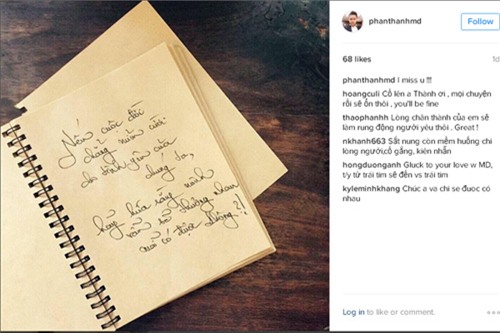 phanthanhmd
Follow
68 likes
1d
phanthanhmd I miss u !!!
hoangculi Cố lên a Thành ơi , mọi chuyện
rồi sẽ ổn thôi , you'll be fine
thaophanhh Lòng chân thành của em sẽ
làm rung động người yêu thôi . Great !
nkhanh663 Sắt nung còn mềm huống chi
lòng người,cố gắng, kiên nhẫn
hongduonganh Gluck to your love w MD,
t/y từ trái tim sẽ đến vs trái tim
kyleminhkhang Chúc a va chi se đuoc có
nhau
Log in to like or comment.
Nếu cuộc đời
chẳng mỉm cười
của
chúng ta,
hãy hứa rằng mình
vẫn sẽ thương nhau
có được không?!